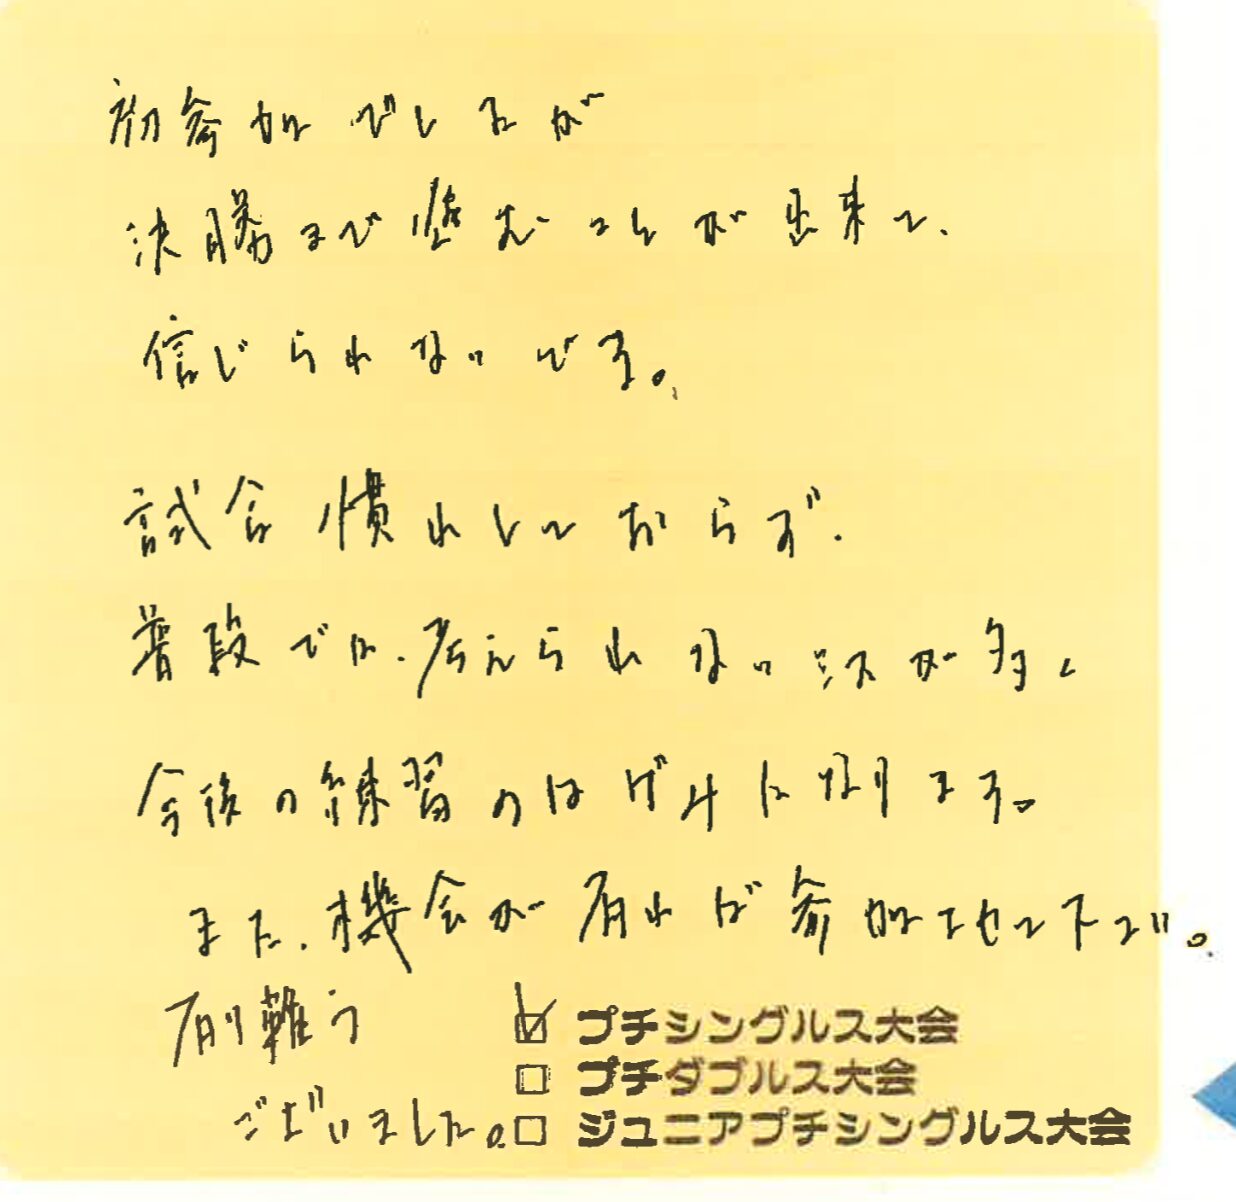 初参加でしたが
決勝まで進むことが出来て、
信じられないです。
試合慣れしておらず、
普段では、考えられないミスが多く
今後の練習のはげみになります。
また、機会が有れば参加させて下さい。
有り難う
ございました。
プチシングルス大会
プチダブルス大会
ジュニアプチシングルス大会